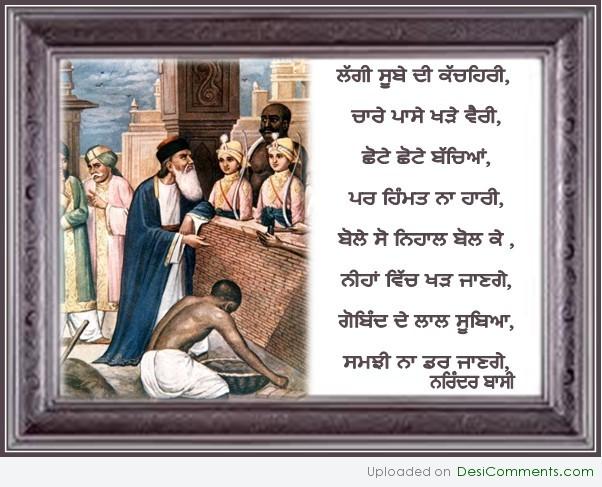 ਲੱਗੀ ਸੂਬੇ ਦੀ ਕੱਚਹਿਰੀ,
ਚਾਰੇ ਪਾਸੇ ਖੜੇ ਵੈਰੀ,
ਛੋਟੇ ਛੋਟੇ ਬੱਚਿਆਂ,
ਪਰ ਹਿੰਮਤ ਨਾ ਹਾਰੀ,
ਬੋਲੇ ਸੋ ਨਿਹਾਲ ਬੋਲ ਕੇ ,
ਨੀਹਾਂ ਵਿੱਚ ਖੜ ਜਾਣਗੇ,
ਗੋਬਿੰਦ ਦੇ ਲਾਲ ਸੂਬਿਆ,
ਸਮਝੀ ਨਾ ਡਰ ਜਾਣਗੇ,
ਨਰਿੰਦਰ ਬਾਸੀ
Uploaded on DesiComments.com